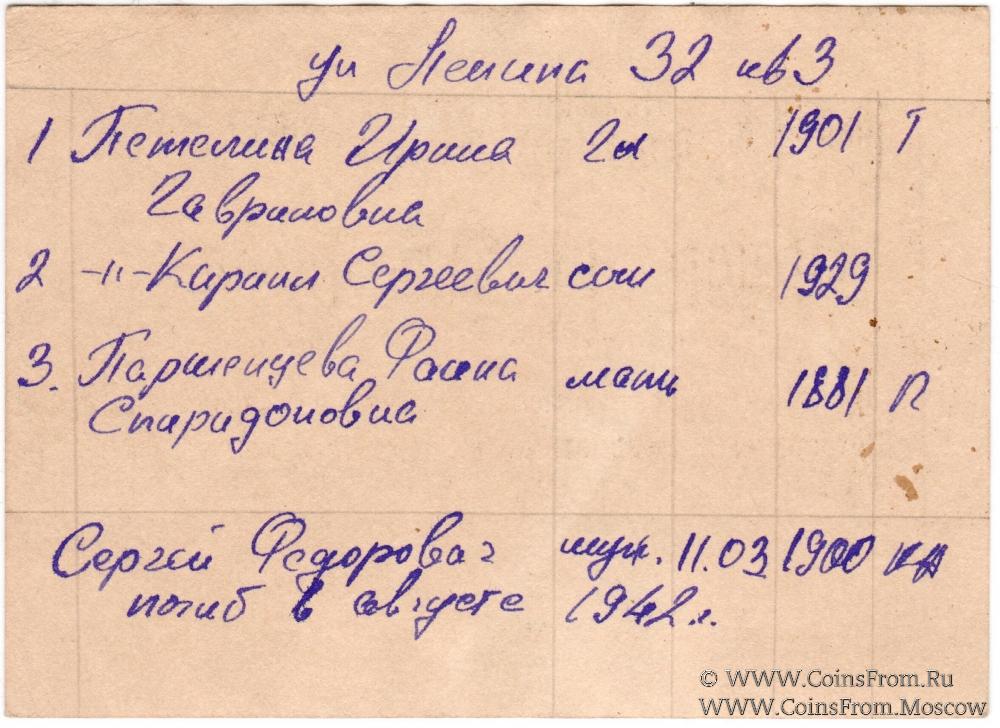 ул Ленина 32 кв 3
1 Петелина Ирина гл 1901 Т
Гавриловна
2 -"- Кирилл Сергеевич сын 1929
3. Паршенцева Фаина мать 1881 П
Спиридоновна
Сергей Федорович муж. 11.03 1900
погиб в августе 1942 г.
© WWW.CoinsFrom.Ru
WWW.CoinsFrom.Moscow